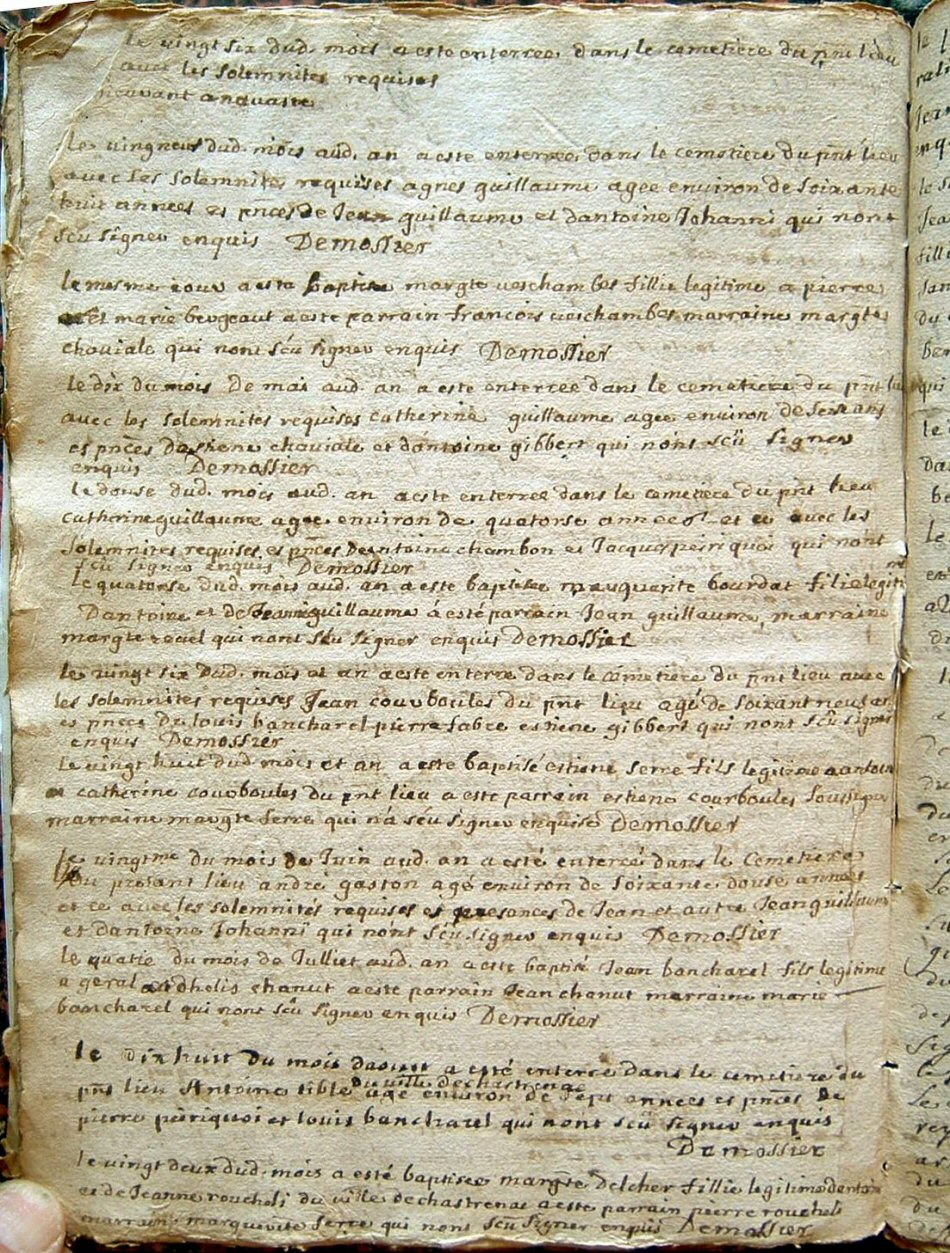 le vingt six dud. mois a este enterree dans le cemetiere du pnt lieu
avec les solemnites requises
neufvant anquaste
le vingneuf dud. mois aud. an a este enterree dans le cemetiere du pnt lieu
avec les solemnites requises agnes guillaume agee environ de soixante
huit annees es pnces de Jean guillaume et dantoine Johanni qui nont
sceu signer enquis Demossier
le mesme jour a este baptisee margte veschambes fillie legitime a pierre
et marie bergeaut a este parrain francois veschambes marraine margte
choviale qui nont sceu signer enquis Demossier
le dix du mois De mai aud. an a este enterree dans le cemetiere du pnt lieu
avec les solemnites requises catherine guillaume agee environ de seix ans
es pnces destiene choviale et dantoine gibbert qui nont sceu signer
enquis Demossier
le douse dud. mois aud. an a este enterree dans le cemetiere du pnt lieu
catherine guillaume agee environ de quatorse annees et ce avec les
solemnites requises es pnces dantoine chambon et Jacques peiriquoi qui nont
sceu signer enquis Demossier
le quatorse dud. mois aud. an a este baptisee marguerite bourdat filie legitime
Dantoine et de Jeanne guillaume a esté parrain Jean guillaume, marraine
margte qui nont sceu signer enquis Demossier
le vingt six dud. mois et an a este enterre dans le cemetiere du pnt lieu avec
les solemnites requises Jean courboules du pnt lieu agé de soixant neuf ans
es pnces De louis bancharel pierre fabre estiene gibbert qui nont sceu signer
enquis Demossier
le vingt huit dud. mois et an a este baptisé estiene serre fils legitime a antoine
et catherine courboules du pnt lieu a este parrain estiene courboules soussigné
marraine margte serre qui na sceu signer enquise Demossier
le vingtme du mois de Juin aud. an a esté enterré dans le Cemetiere
Du presant lieu andré gaston agé environ de soixante douse annees
et ce avec les solemnités requises es presances de Jean et autre Jean guillaume
et dantoine Johanni qui nont sceu signer enquis Demossier
le quatre du mois de Julliet aud. an a este baptisé Jean bancharel fils legitime
a geral et dhelis chanut a este parrain Jean chanut marraine marie
bancharel qui nont sceu signer enquis Demossier
le dixhuit du mois daoust a esté enterré dans le cemetiere du
du ville dechastrenac
pnt lieu Antoine tible agé environ de sept annees es pnces De
pierre peiriquoi et louis bancharel qui nont sceu signer enquis
Demossier
le vingt deux dud. mois a esté baptisee margte delcher fillie legitime dantoine
et de Jeanne roucheli du ville dechastrenac a este parrain pierre roucheli
marraine marguerite serre qui nont sceu signer enquis Demossier